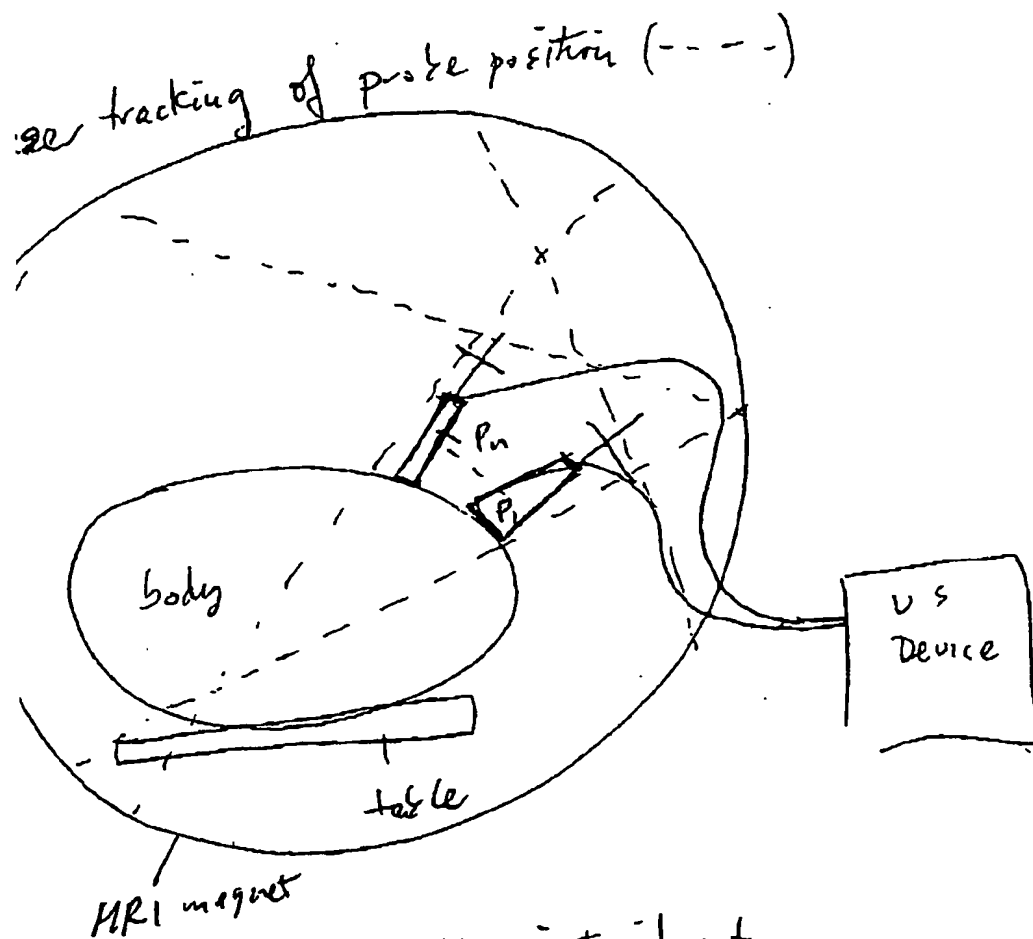 tracking of probe position (-----)
Pn
P1
body
US
Device
table
MRI magnet